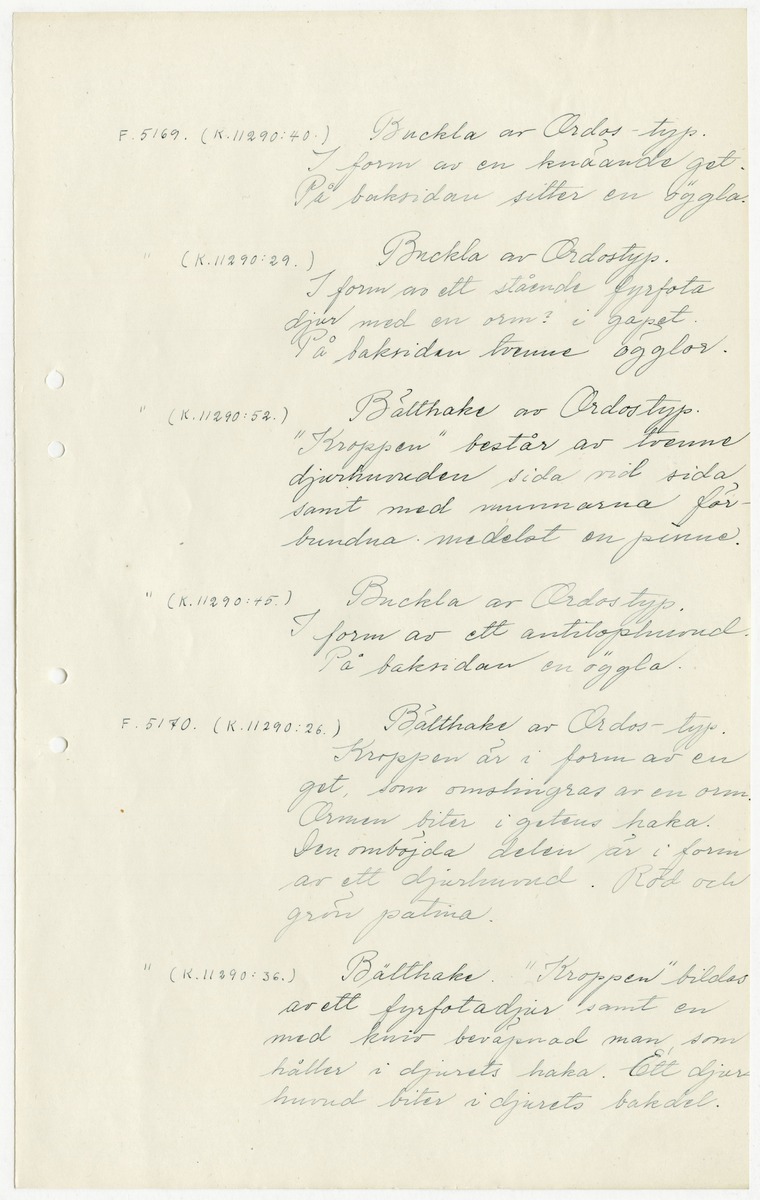 F. 5169. (K.11290:40.) Buckla av Ordos-typ.
I form av en knäande get.
På baksidan sitter en öggla.
" (K.11290:29.) Buckla av Ordostyp.
I form av ett stående fyrfota
djur med en orm? i gapet.
På baksidan tvenne ögglor.
" (K.11290:52.) Bälthake av Ordostyp.
"Kroppen" består av tvenne
djurhuvuden sida vid sida
samt med munnarna för-
bundna medelst en pinne.
" (K.11290:45.) Buckla av Ordostyp.
I form av ett antilophuvud.
På baksidan en öggla.
F. 5170. (K.11290:26.) Bälthake av Ordos-typ.
Kroppen är i form av en
get, som omslingras av en orm.
Ormen biter i getens haka.
Den omböjda delen är i form
av ett djurhuvud. Röd och
grön patina.
" (K.11290:36.) Bälthake. "Kroppen" bildas
av ett fyrfotadjur samt en
med kniv beväpnad man, som
håller i djurets haka. Ett djur-
huvud biter i djurets bakdel.